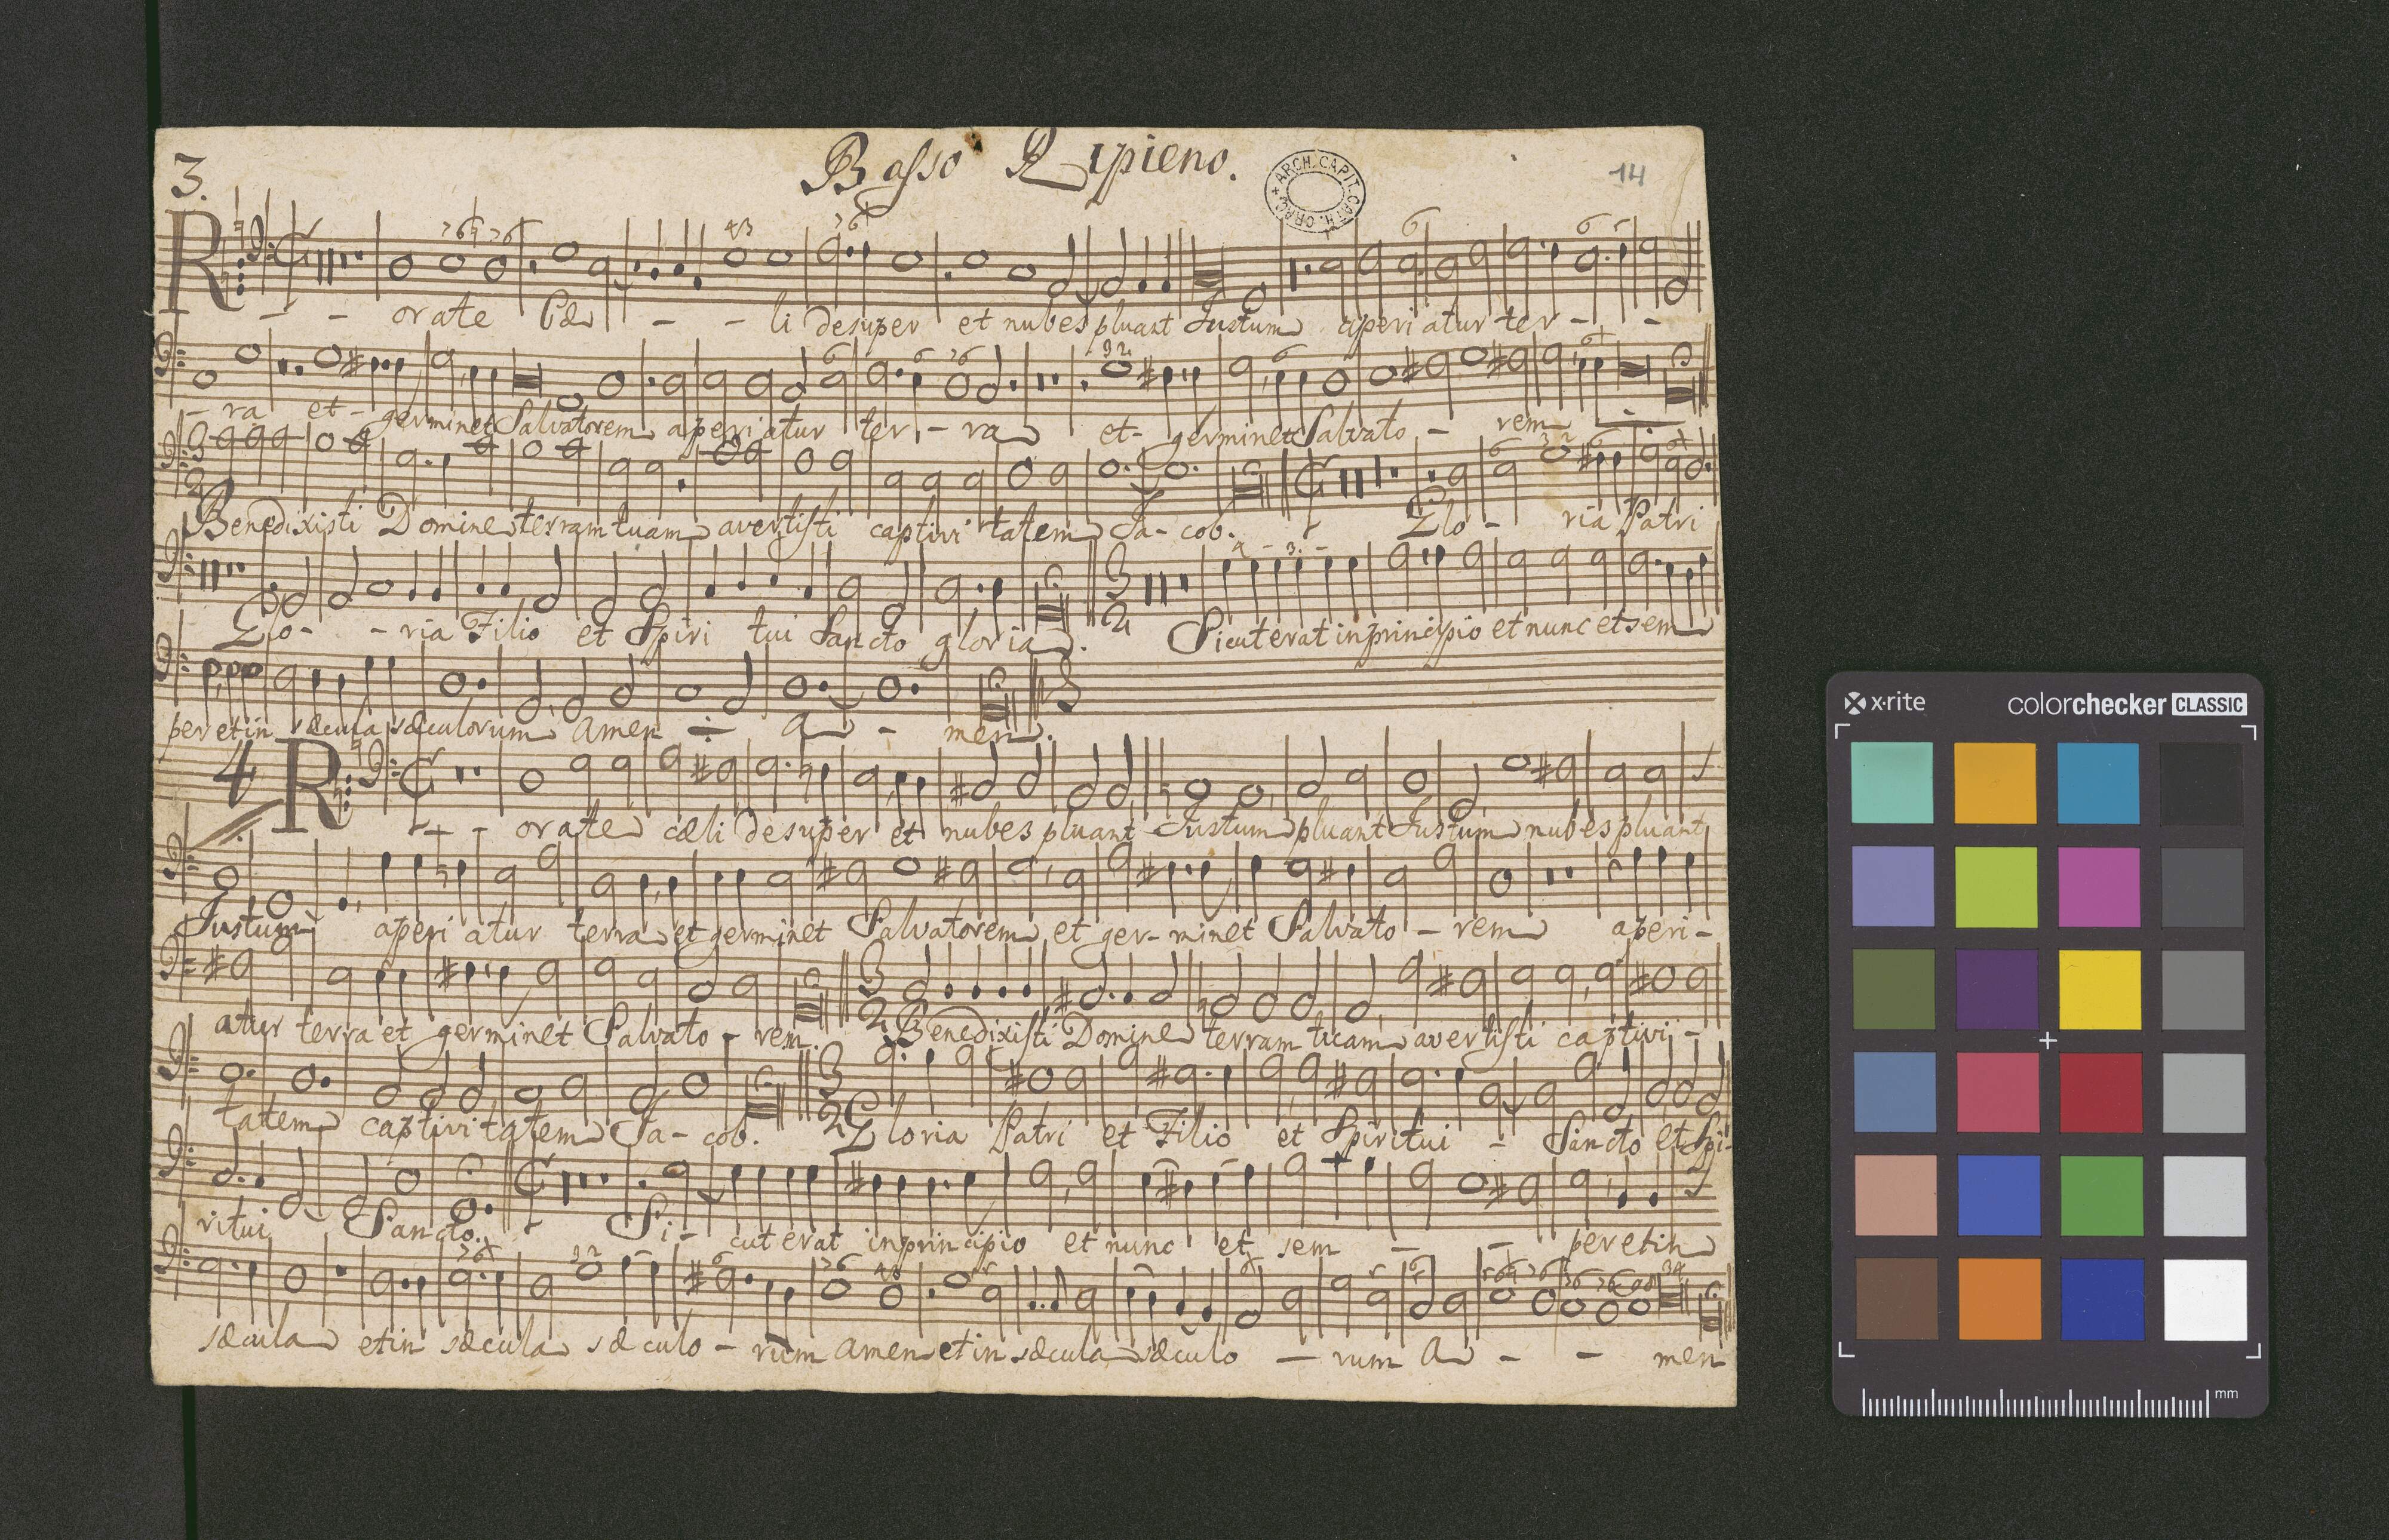 3.
Basso Ripieno.
ARCH. CAPIT. CATH. CRAC.
14
R - - orate Cæ - - li desuper et nubes pluant Justum aperiatur ter - -
- ra et - germinet Salvatorem aperiatur ter - ra et - germinet Salvato - rem
Benedixisti Domine terram tuam avertisti captivitatem Ja - cob. Glo - ria Patri
Glo - - ria Filio et Spiri tui Sancto gloria. Sicut erat in principio et nunc et sem
per et in sæcula sæculorum Amen A - men.
4 R - orate cæli desuper et nubes pluant Justum pluant Justum nubes pluant
Justum aperi atur terra et germinet Salvatorem et ger - minet Salvato - rem aperi -
atur terra et germinet Salvato - rem. Benedixisti Domine terram tuam avertisti captivi -
tatem captivitatem Ja - cob. Gloria Patri et Filio et Spiritui - Sancto et Spi -
ritui Sancto. Si - cut erat in principio et nunc et sem - - per et in
sæcula et in sæcula sæ culo - rum amen et in sæcula sæculo - rum A - - men
x·rite
colorchecker CLASSIC
mm